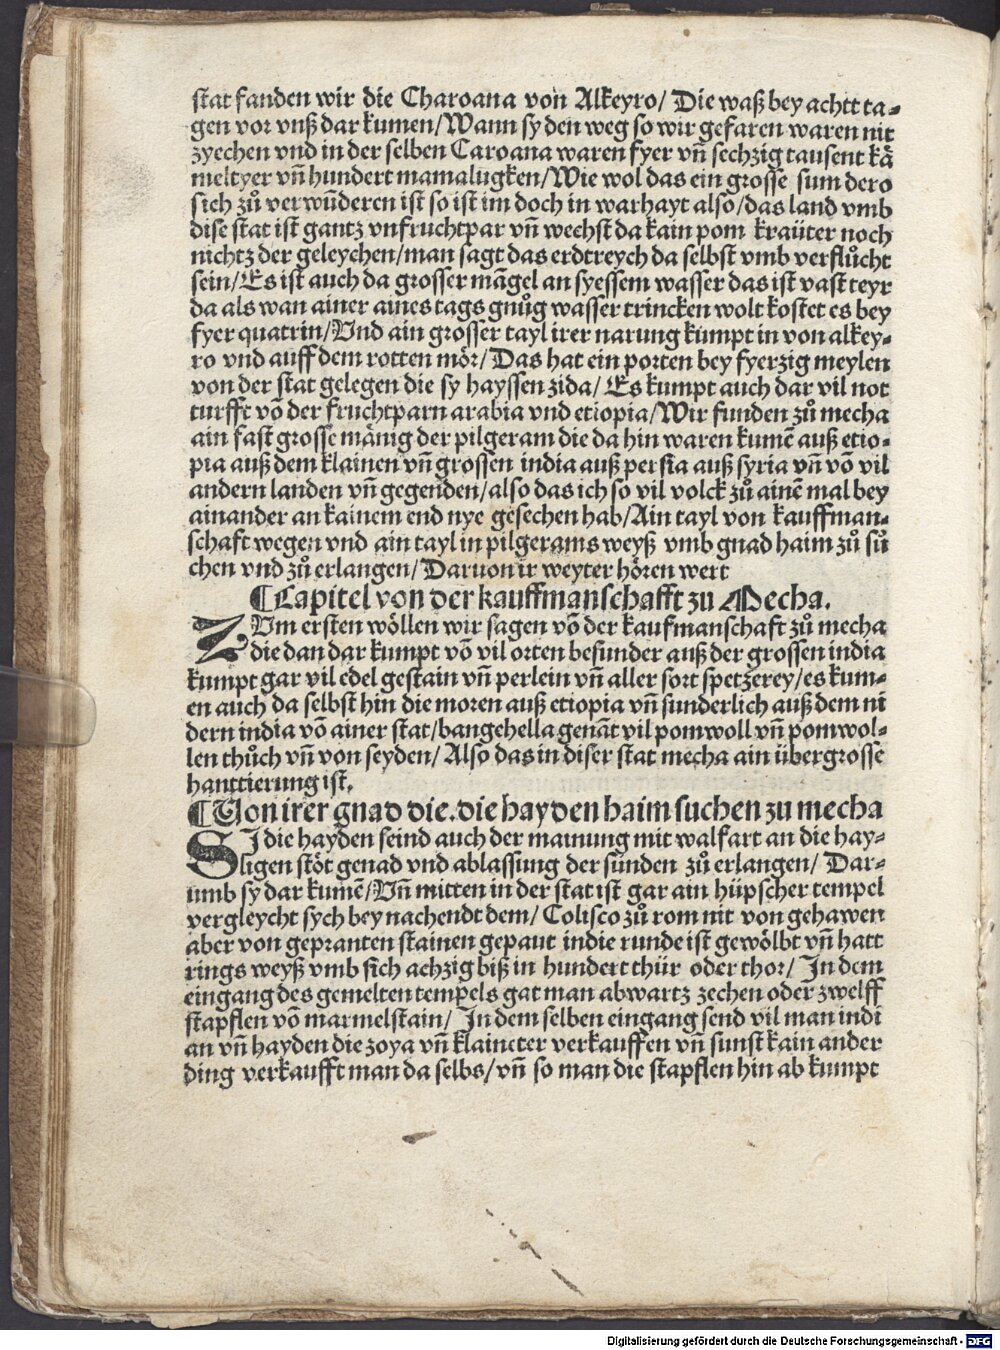 stat fanden wir die Charoana von Alkeyro/ Die waß bey achtt ta-
gen vor vnß dar kumen/Wann sy den weg so wir gefaren waren nit
zyechen vnd in der selben Caroana waren fyer vñ sechzig tausent kä
meltyer vñ hundert mamalugken/Wie wol das ein grosse sum dero
sich zů verwũderen ist so ist im doch in warhayt also/das land vmb
dise stat ist gantz vnfruchtpar vñ wechst da kain pom kraüter noch
nichtz der geleychen/man sagt das erdtreych da selbst vmb verflůcht
sein/Es ist auch da grosser mãgel an syessem wasser das ist vast teyr
da als wan ainer aines tags gnůg wasser trincken wolt kostet es bey
fyer quatrin/Vnd ain grosser tayl irer narung kumpt in von alkey-
ro vnd auff dem rotten mör/Das hat ein porten bey fyerzig meylen
von der stat gelegen die sy hayssen zida/Es kumpt auch dar vil not
turfft võ der fruchtparn arabia vnd etiopia/Wir funden zů mecha
ain fast grosse mänig der pilgeram die da hin waren kumẽ auß etio-
pia auß dem klainen vñ grossen india auß persia auß syria vñ võ vil
andern landen vñ gegenden/also das ich so vil volck zů ainẽ mal bey
ainander an kainem end nye gesechen hab/Ain tayl von kauffman-
schaft wegen vnd ain tayl in pilgerams weyß vmb gnad haim zů sů
chen vnd zů erlangen/Daruon ir weyter hören wert
¶Capitel von der kauffmanschafft zu Mecha.
ZVm ersten wöllen wir sagen võ der kaufmanschaft zů mecha
die dan dar kumpt võ vil orten besunder auß der grossen india
kumpt gar vil edel gestain vñ perlein vñ aller sort spetzerey/es kum-
en auch da selbst hin die moren auß etiopia vñ sunderlich auß dem ni
dern india võ ainer stat/bangehella genãt vil pomwoll vñ pomwol-
len thůch vñ von seyden/Also das in diser stat mecha ain übergrosse
hanttierung ist.
¶Von irer gnad die.die hayden haim suchen zu mecha
SJ die hayden seind auch der mainung mit walfart an die hay-
ligen stöt genad vnd ablassung der sünden zů erlangen/ Dar-
umb sy dar kumẽ/Vñ mitten in der stat ist gar ain hüpscher tempel
vergleycht sych bey nachendt dem/Colisco zů rom nit von gehawen
aber von gepranten stainen gepaut in die runde ist gewölbt vñ hatt
rings weyß vmb sich achzig biß in hundert thür oder thor/ Jn dem
eingang des gemelten tempels gat man abwartz zechen oder zwelff
stapflen võ marmelstain/ Jn dem selben eingang send vil man indi
an vñ hayden die zoya vñ klaineter verkauffen vñ sunst kain ander
ding verkaufft man da selbs/vñ so man die stapflen hin ab kumpt
Digitalisierung gefördert durch die Deutsche Forschungsgemeinschaft - DFG